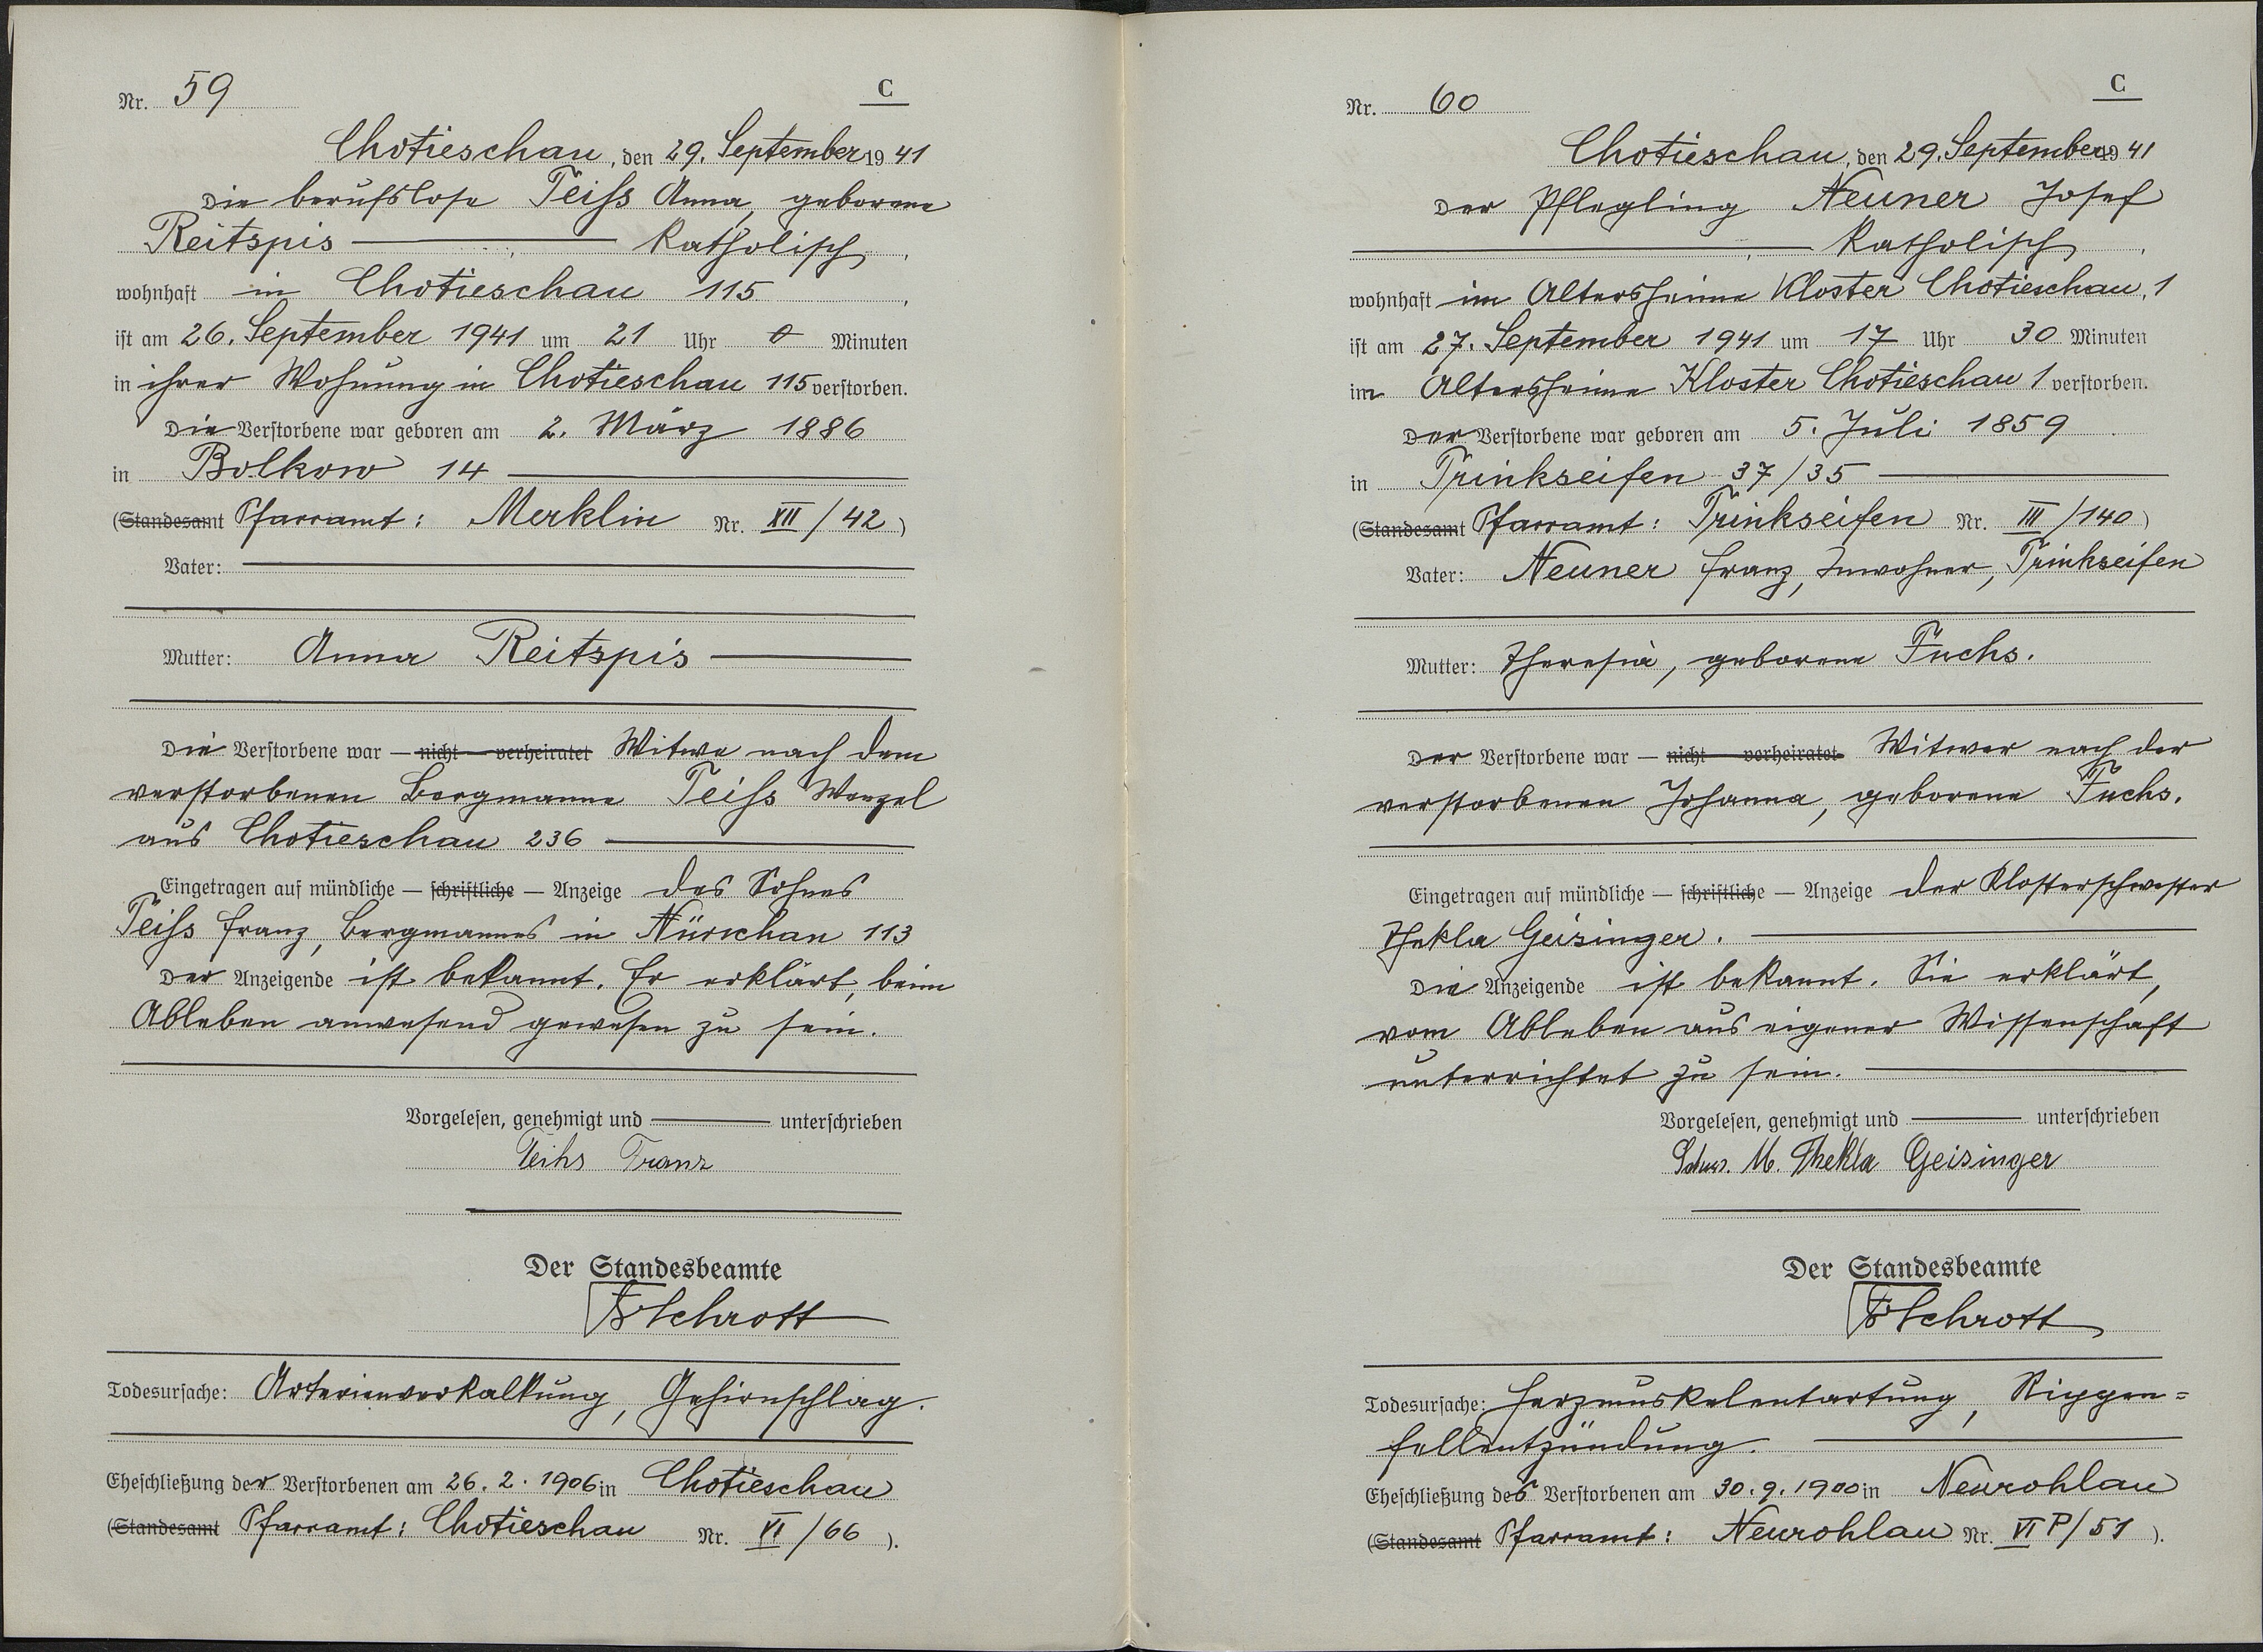 Nr. 59
C
Chotieschau, den 29. September 1941
Die berufslose Teiss Anna, geborene
Reitspis — katholisch,
wohnhaft in Chotieschau 115,
ist am 26. September 1941 um 21 Uhr 0 Minuten
in ihrer Wohnung in Chotieschau 115 verstorben.
Die Verstorbene war geboren am 2. März 1886
in Bolkow 14 —
(Standesamt Pfarramt: Merklin Nr. XII/42)
Vater: —
Mutter: Anna Reitspis —
Die Verstorbene war — nicht — verheiratet Witwe nach dem
verstorbenen Bergmanne Teiss Wenzel
aus Chotieschau 236 —
Eingetragen auf mündliche — schriftliche — Anzeige des Sohnes
Teiss Franz, Bergmannes in Nürschan 113
Der Anzeigende ist bekannt. Er erklärt, beim
Ableben anwesend gewesen zu sein.
Vorgelesen, genehmigt und — unterschrieben
Teihs Franz
Der Standesbeamte
Schrott
Todesursache: Arterienverkalkung, Gehirnschlag.
Eheschließung der Verstorbenen am 26. 2. 1906 in Chotieschau
(Standesamt Pfarramt: Chotieschau Nr. VI/66).
Nr. 60
C
Chotieschau, den 29. September 1941
Der Pflegling Neuner Josef
— katholisch,
wohnhaft im Altersheime Kloster Chotieschau, 1
ist am 27. September 1941 um 17 Uhr 30 Minuten
im Altersheime Kloster Chotieschau 1 verstorben.
Der Verstorbene war geboren am 5. Juli 1859
in Trinkseifen 37/35 —
(Standesamt Pfarramt: Trinkseifen Nr. III/140)
Vater: Neuner Franz, Inwohner, Trinkseifen
Mutter: Theresia, geborene Fuchs.
Der Verstorbene war — nicht — verheiratet Witwer nach der
verstorbenen Johanna, geborene Fuchs.
Eingetragen auf mündliche — schriftliche — Anzeige der Klosterschwester
Thekla Geisinger. —
Die Anzeigende ist bekannt. Sie erklärt,
vom Ableben aus eigener Wissenschaft
unterrichtet zu sein. —
Vorgelesen, genehmigt und — unterschrieben
Schw. M. Thekla Geisinger
Der Standesbeamte
Schrott
Todesursache: Herzmuskelentartung, Rippen=
fellentzündung. —
Eheschließung des Verstorbenen am 30. 9. 1900 in Neurohlau
(Standesamt Pfarramt: Neurohlau Nr. VI P/51).